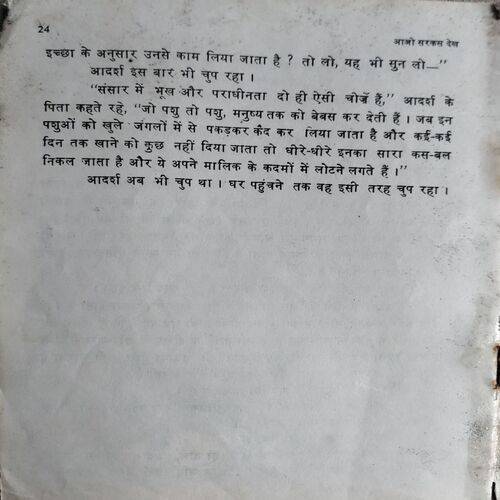 24
आओ सरकस देखें
इच्छा के अनुसार उनसे काम लिया जाता है ? तो लो, यह भी सुन लो—”
आदर्श इस बार भी चुप रहा ।
“संसार में भूख और पराधीनता दो ही ऐसी चीजें हैं,” आदर्श के
पिता कहते रहे, “जो पशु तो पशु, मनुष्य तक को बेबस कर देती हैं । जब इन
पशुओं को खुले जंगलों में से पकड़कर कैद कर लिया जाता है और कई-कई
दिन तक खाने को कुछ नहीं दिया जाता तो धीरे-धीरे इनका सारा कस-बल
निकल जाता है और ये अपने मालिक के कदमों में लोटने लगते हैं ।”
आदर्श अब भी चुप था । घर पहुंचने तक वह इसी तरह चुप रहा ।